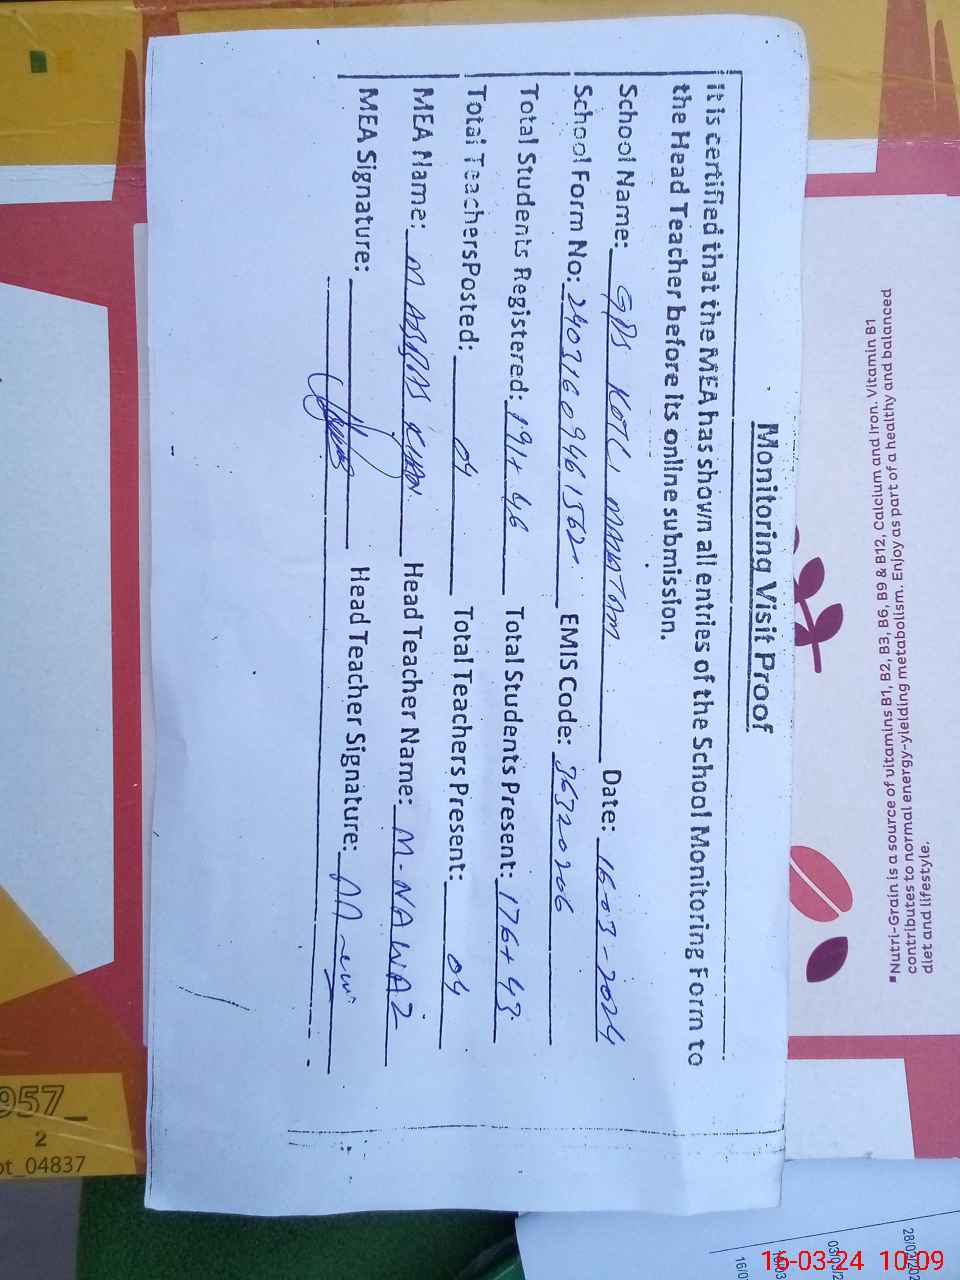 Monitoring Visit Proof
it is certified that the MEA has shown all entries of the School Monitoring Form to
the Head Teacher before its online submission.
School Name: GPS KOTLI Date: 16-03-2024
School Form No: 2403160946156 EMIS Code: 36320206
Total Students Registered: 191+46 Total Students Present: 176+43
Total TeachersPosted: 04 Total Teachers Present: 04
MEA Name: M ABBAS KHAN Head Teacher Name: M-NAWAZ
MEA Signature: Head Teacher Signature:
■Nutri-Grain is a source of vitamins B1, B2, B3, B6, B9 & B12, Calcium and Iron. Vitamin B1
contributes to normal energy-yielding metabolism. Enjoy as part of a healthy and balanced
diet and lifestyle.
957_
2
ot_04837
16-03-24 10:09